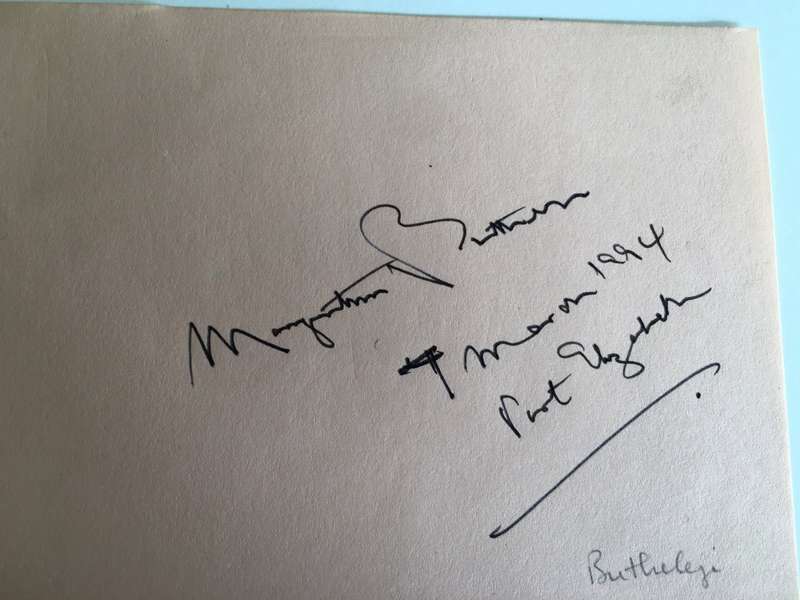 Mangosuthu Buthelezi
4 March 1994
Port Elizabeth
Buthelezi